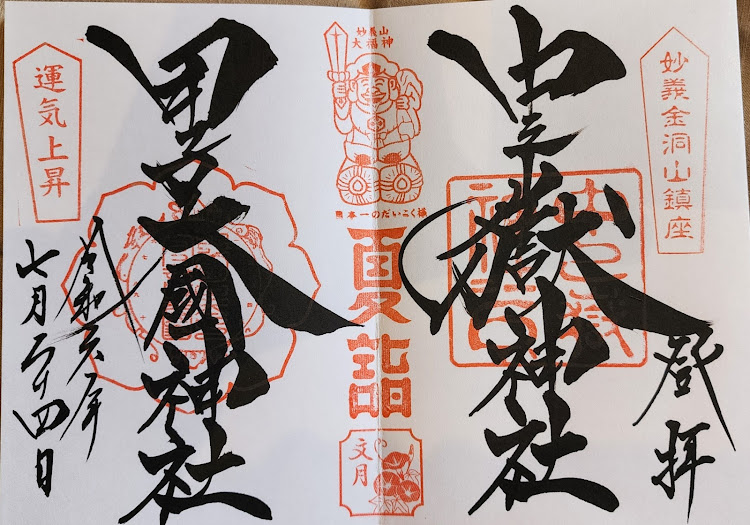 妙義金洞山鎮座
登拝
中之嶽神社
妙義山
大福神
日本一のだいこく様
夏詣
文月
運気上昇
甲子大國神社
令和六年
七月二十四日